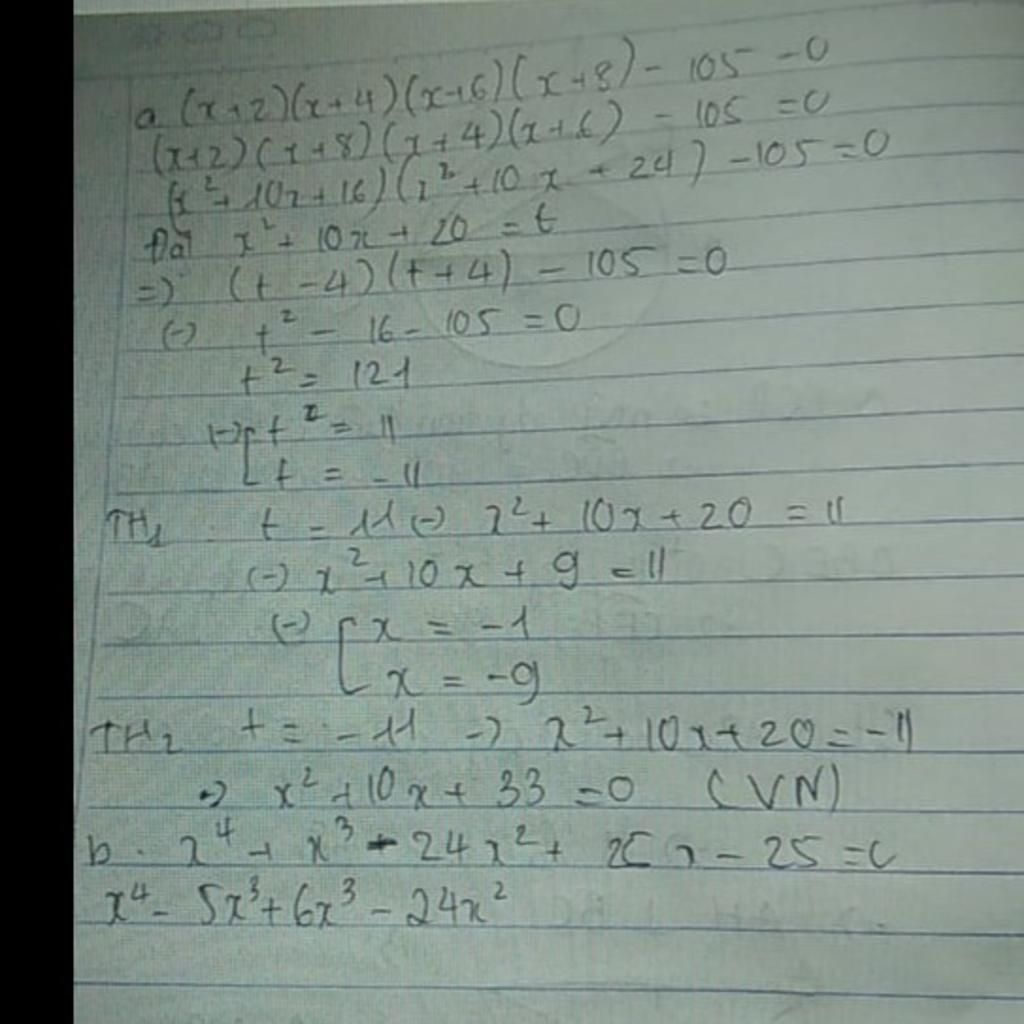 a (x+2)(x+4)(x+6)(x+8) - 105 - 0
(x+2)(x+8)(x+4)(x+6) - 105 = 0
(x²+10x+16)(x²+10x+24) - 105 = 0
Đặt x²+10x+20 = t
=> (t-4)(t+4) - 105 = 0
(-) t² - 16 - 105 = 0
t² = 121
(-) [ t² = 11
t = -11
TH1 t = 11 (-) x²+10x+20 = 11
(-) x²+10x+9 = 11
(-) [ x = -1
x = -9
TH2 t = -11 -> x²+10x+20 = -11
-> x²+10x+33 = 0 (VN)
b. x⁴+x³-24x²+ x-25=0
x⁴-5x³+6x³-24x²